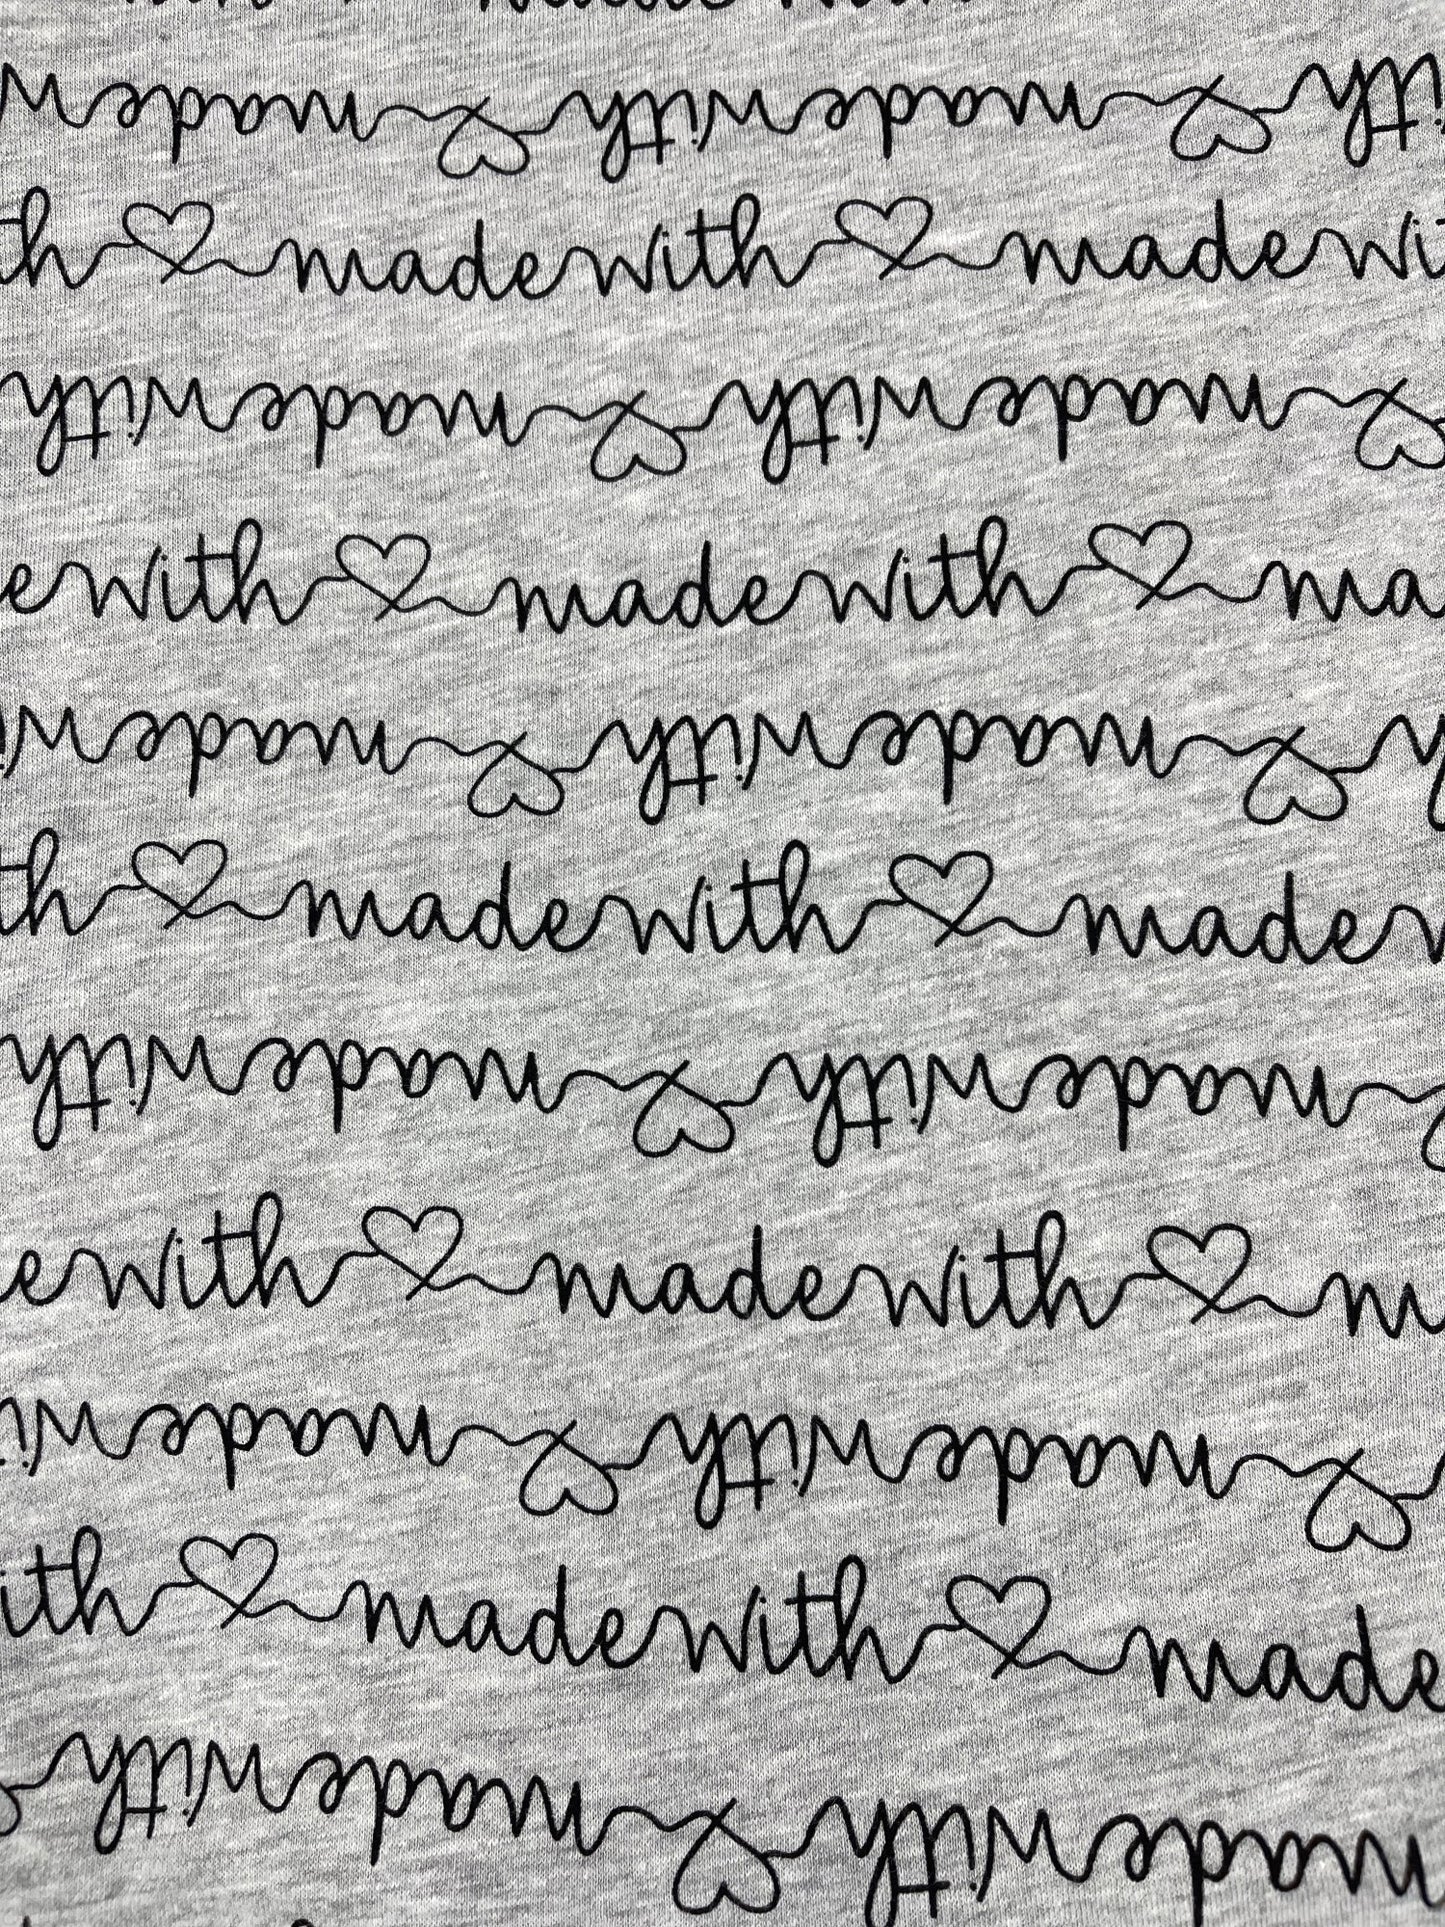 th made with made w
th made with made wi
made with made with
e with made with ma
h made with made wi
th made with made w
made with made with
e with made with m
made with made wi
ith made with made
made with made with